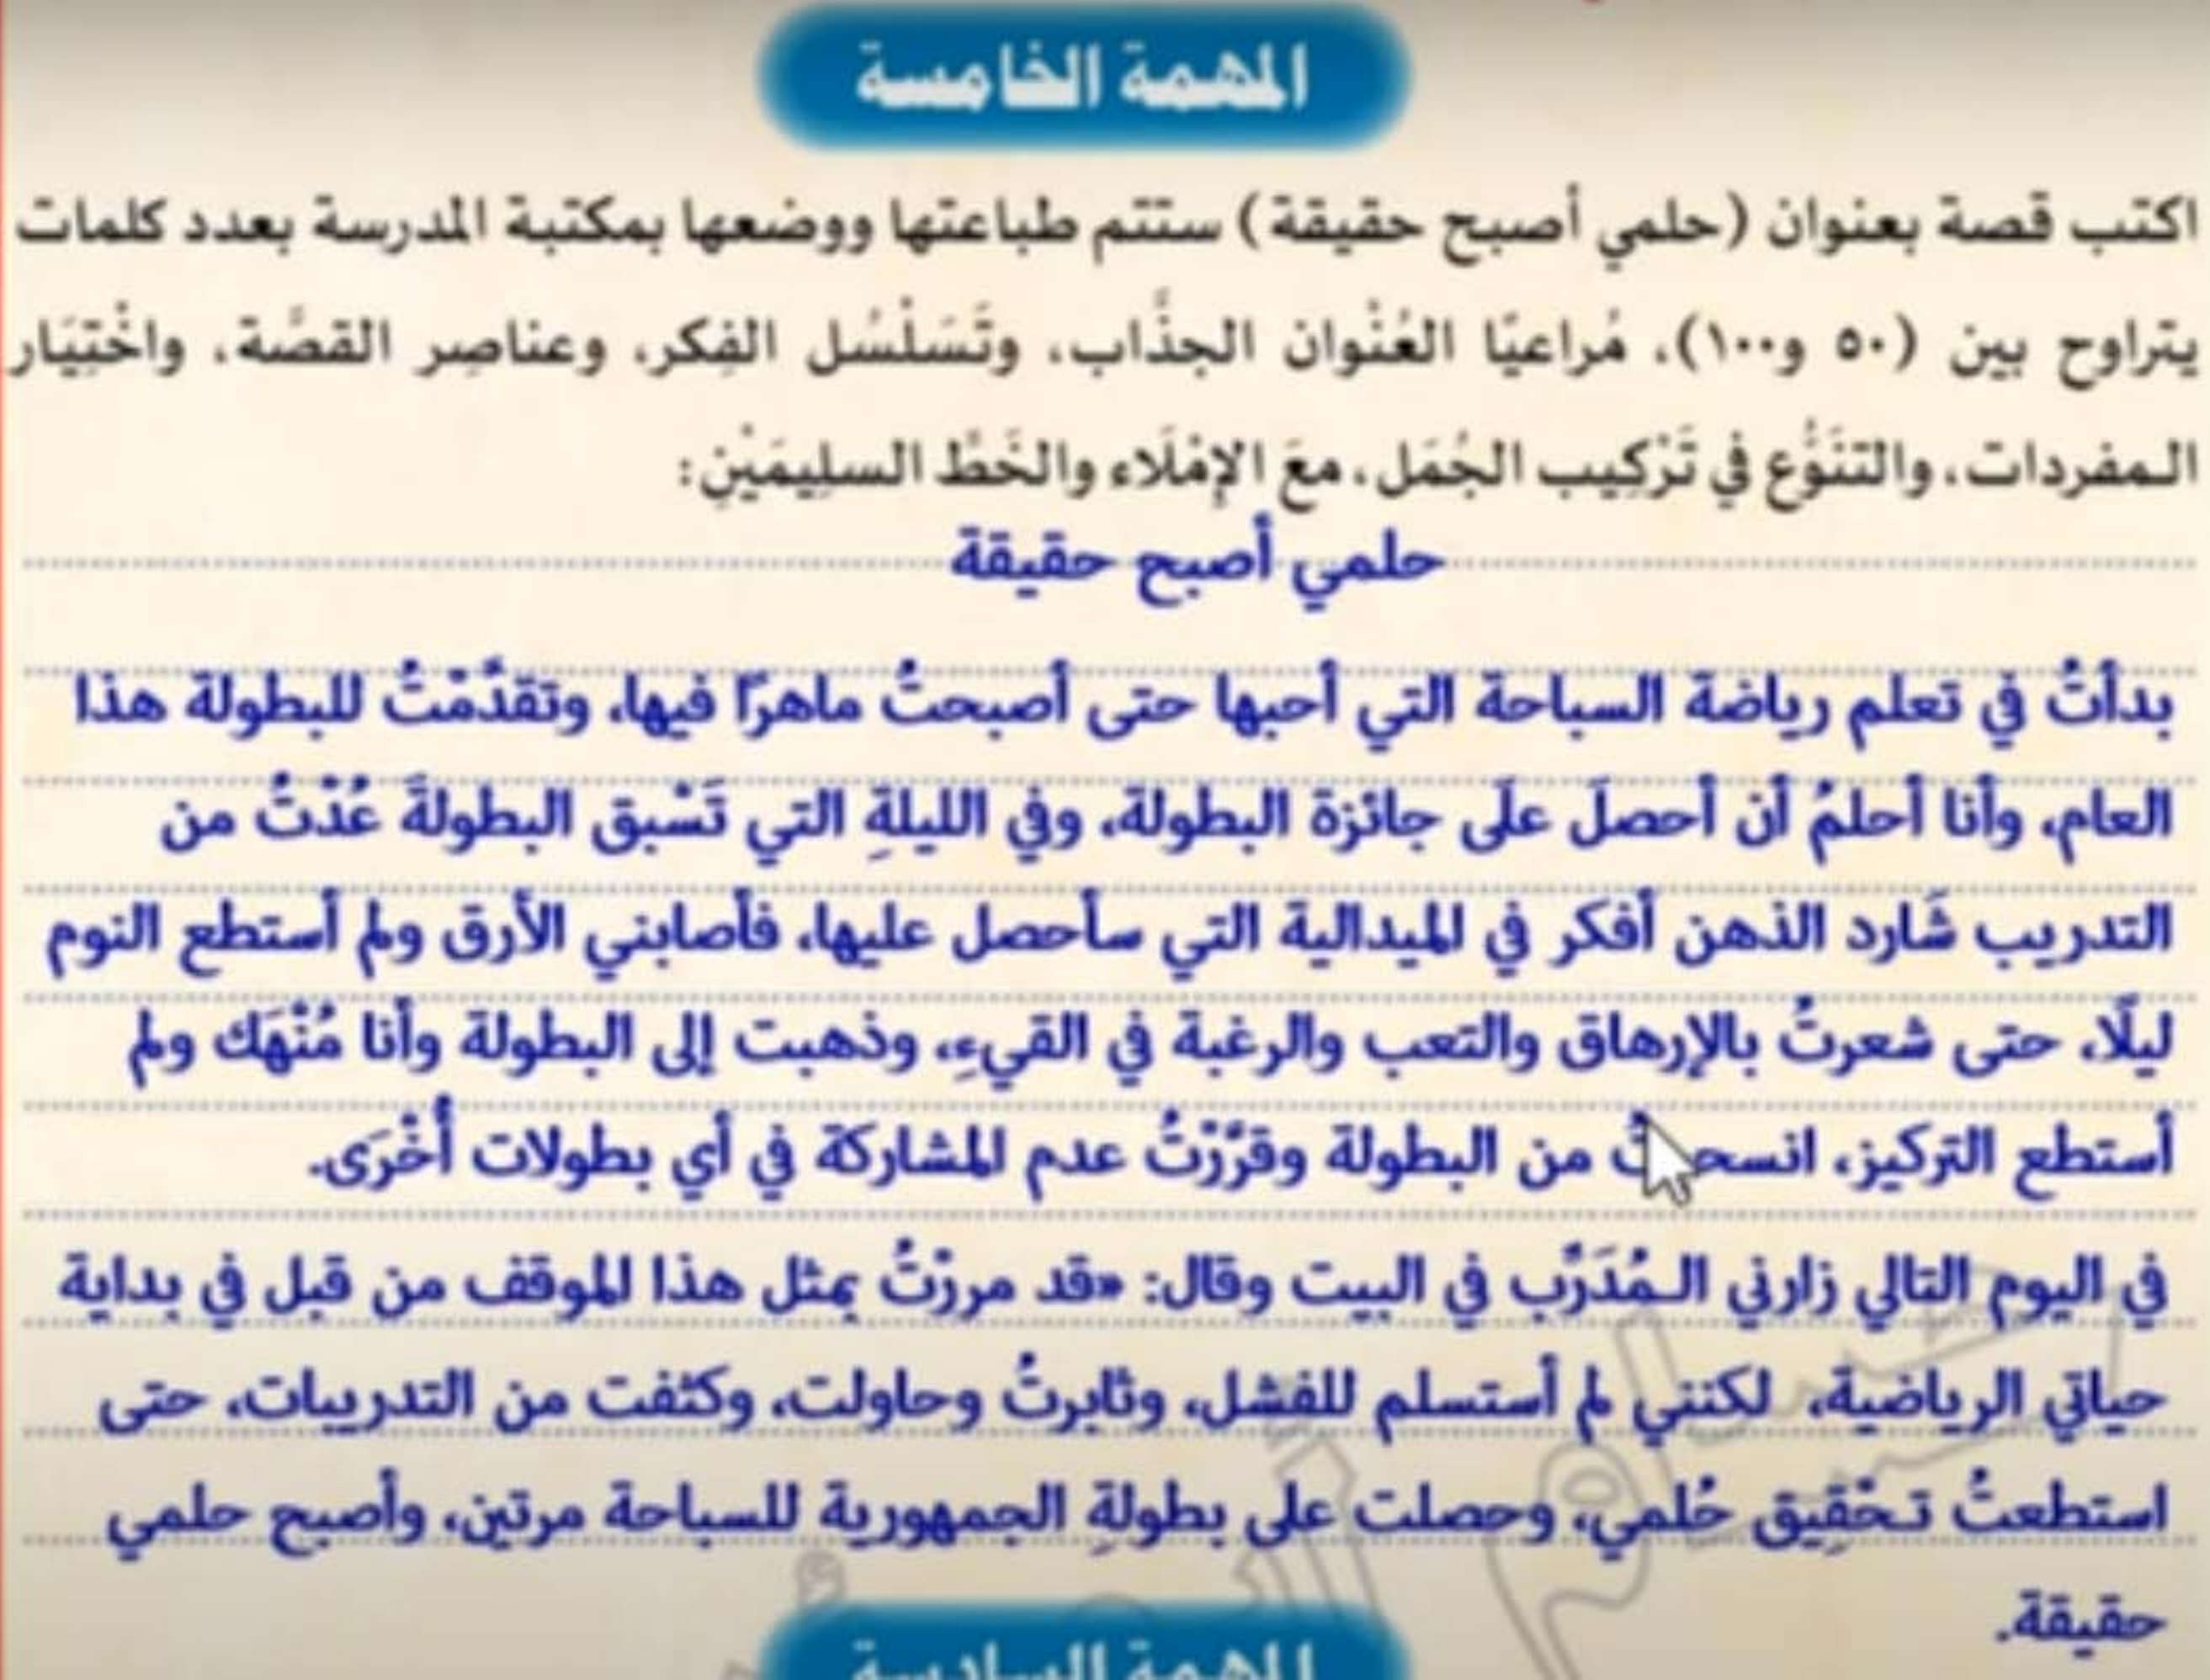 المهمة الخامسة
اكتب قصة بعنوان (حلمي أصبح حقيقة) ستتم طباعتها ووضعها بمكتبة المدرسة بعدد كلمات
يتراوح بين (٥٠ و١٠٠)، مُراعيًا العُنْوان الجذَّاب، وتَسَلْسُل الفِكر، وعناصِر القصَّة، واخْتِيَار
المفردات، والتنَوُّع في تَرْكِيب الجُمَل، معَ الإِمْلَاء والخَطِّ السلِيمَيْنِ:
حلمي أصبح حقيقة
بدأتُ في تعلم رياضة السباحة التي أحبها حتى أصبحتُ ماهرًا فيها، وتقدَّمْتُ للبطولة هذا
العام، وأنا أحلمُ أن أحصلَ علَى جائزة البطولة، وفي الليلةِ التي تَسْبق البطولةَ عُدْتُ من
التدريب شَارد الذهن أفكر في الميدالية التي سأحصل عليها، فأصابني الأرق ولم أستطع النوم
ليلًا، حتى شعرتُ بالإرهاق والتعب والرغبة في القيءِ، وذهبت إلى البطولة وأنا مُنْهَك ولم
أستطع التركيز، انسحبتُ من البطولة وقرَّرْتُ عدم المشاركة في أي بطولات أُخْرَى.
في اليوم التالي زارني المُدَرِّب في البيت وقال: «قد مررْتُ بمثل هذا الموقف من قبل في بداية
حياتي الرياضية، لكنني لم أستسلم للفشل، وثابرتُ وحاولت، وكثفت من التدريبات، حتى
استطعتُ تحْقِيق حُلمي، وحصلت على بطولةِ الجمهورية للسباحة مرتين، وأصبح حلمي
حقيقة.
المهمة السادسة